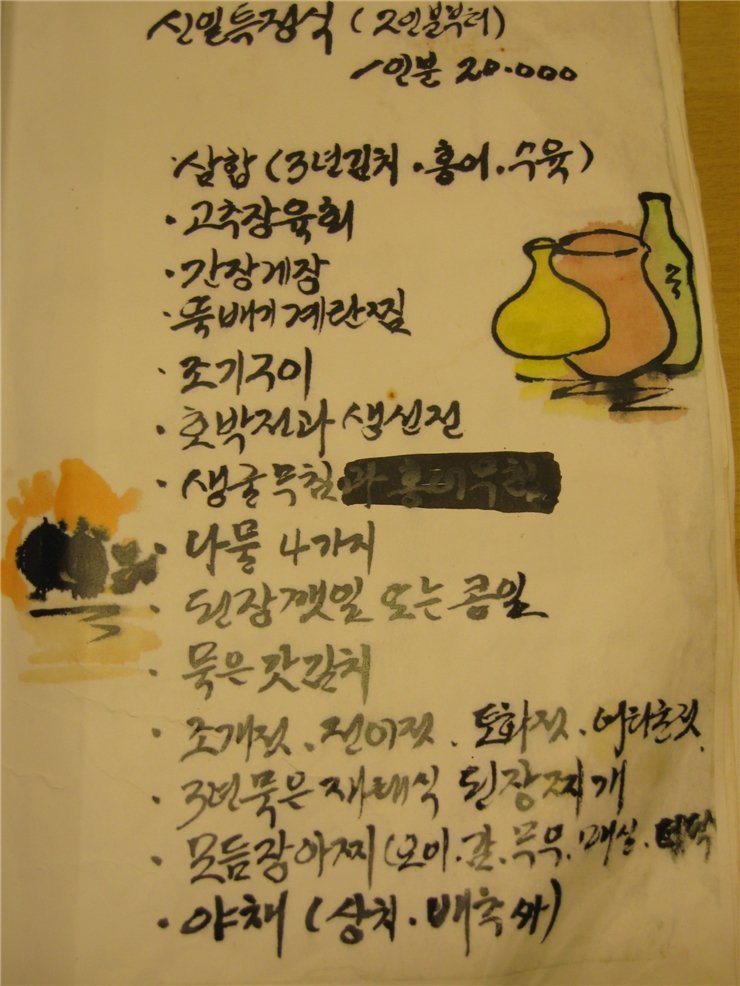 신일특정식 (2인분부터)
1인분 20.000
·삼합 (3년김치 · 홍어 · 수육)
· 고추장육회
· 간장게장
· 뚝배기계란찜
· 조기구이
· 호박전과 생선전
· 생굴무침과 홍어무침
· 나물 4가지
· 된장깻잎 또는 콩잎
· 묵은갓김치
· 조개젓 . 전어젓 . 토하젓 .
· 3년묵은 재래식 된장찌개
· 모듬장아찌 (오이 . 감 . 무우 . 매실 .
· 야채 (상치 · 배추쌈)